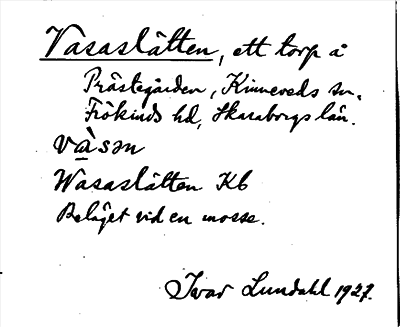 Vasaslätten, ett torp å
Prästegården, Kinneveds sn.
Frökinds hd, Skaraborgs län.
vàsən
Wasaslätten Kb
Beläget vid en mosse.
Ivar Lundahl 1927.